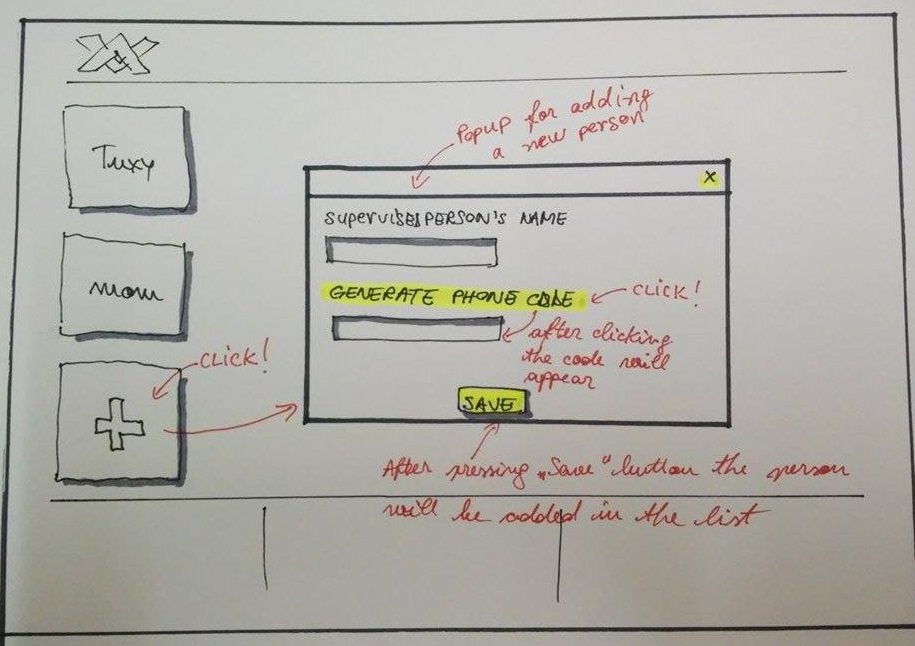 Tuxy
mom
CLICK!
Popup for adding
a new person
X
SUPERVISED PERSON'S NAME
GENERATE PHONE CODE
CLICK!
after clicking
the code will
appear
SAVE
After pressing „Save“ button the person
will be added in the list